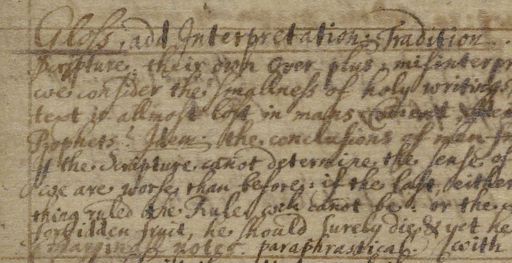 Gloss, add Interpretation: Tradition
Scripture, their own over plus, misinterpr
we consider the smallness of holy writings,
text is allmost lost in mans Coment
Prophets. Idem. the conclusions of men
If the Scripture canot determine the sense of
we are worse than before: if the last, either
thing ruled the Rule, wch canot be: or the
forbidden fruit, he should surely die, & yet he
marginal notes. paraphrastical. with